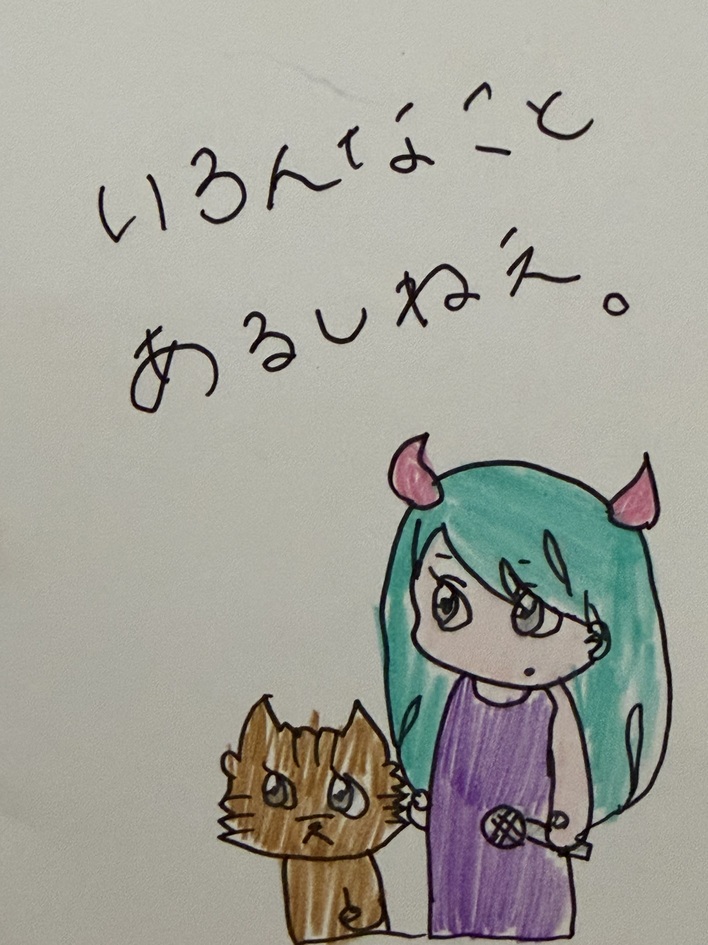 いろんなこと
あるしねえ。